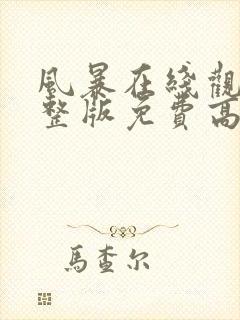 風暴在綫觀
整版免費高
馬查尔